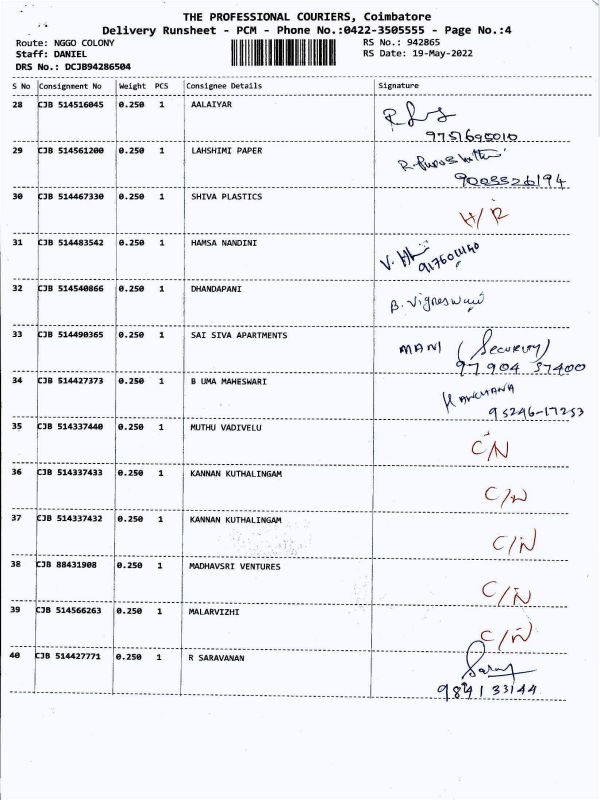 THE PROFESSIONAL COURIERS, Coimbatore
Delivery Runsheet - PCM - Phone No.:0422-3505555 - Page No.:4
Route: NGGO COLONY RS No.: 942865
Staff: DANIEL RS Date: 19-May-2022
DRS No.: DCJB94286504
S No Consignment No Weight PCS Consignee Details Signature
28 CJB 514516045 0.250 1 AALAIYAR
9751695010
29 CJB 514561200 0.250 1 LAHSHIMI PAPER
9003526194
30 CJB 514467330 0.250 1 SHIVA PLASTICS
H/R
31 CJB 514483542 0.250 1 HAMSA NANDINI
32 CJB 514540866 0.250 1 DHANDAPANI
B. Vigneswari
33 CJB 514490365 0.250 1 SAI SIVA APARTMENTS
MANI (Security)
97904 37400
34 CJB 514427373 0.250 1 B UMA MAHESWARI
95246-17253
35 CJB 514337440 0.250 1 MUTHU VADIVELU
C/N
36 CJB 514337433 0.250 1 KANNAN KUTHALINGAM
C/N
37 CJB 514337432 0.250 1 KANNAN KUTHALINGAM
C/N
38 CJB 88431908 0.250 1 MADHAVSRI VENTURES
C/N
39 CJB 514566263 0.250 1 MALARVIZHI
C/N
40 CJB 514427771 0.250 1 R SARAVANAN
984133144